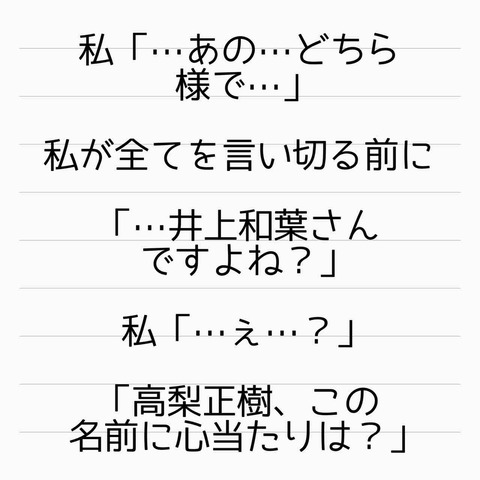 私「…あの…どちら
様で…」
私が全てを言い切る前に
「…井上和葉さん
ですよね？」
私「…ぇ…？」
「高梨正樹、この
名前に心当たりは？」